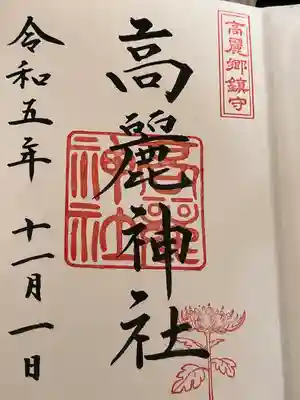 高麗郷鎮守
高麗神社
高麗神社
令和五年 十一月一日